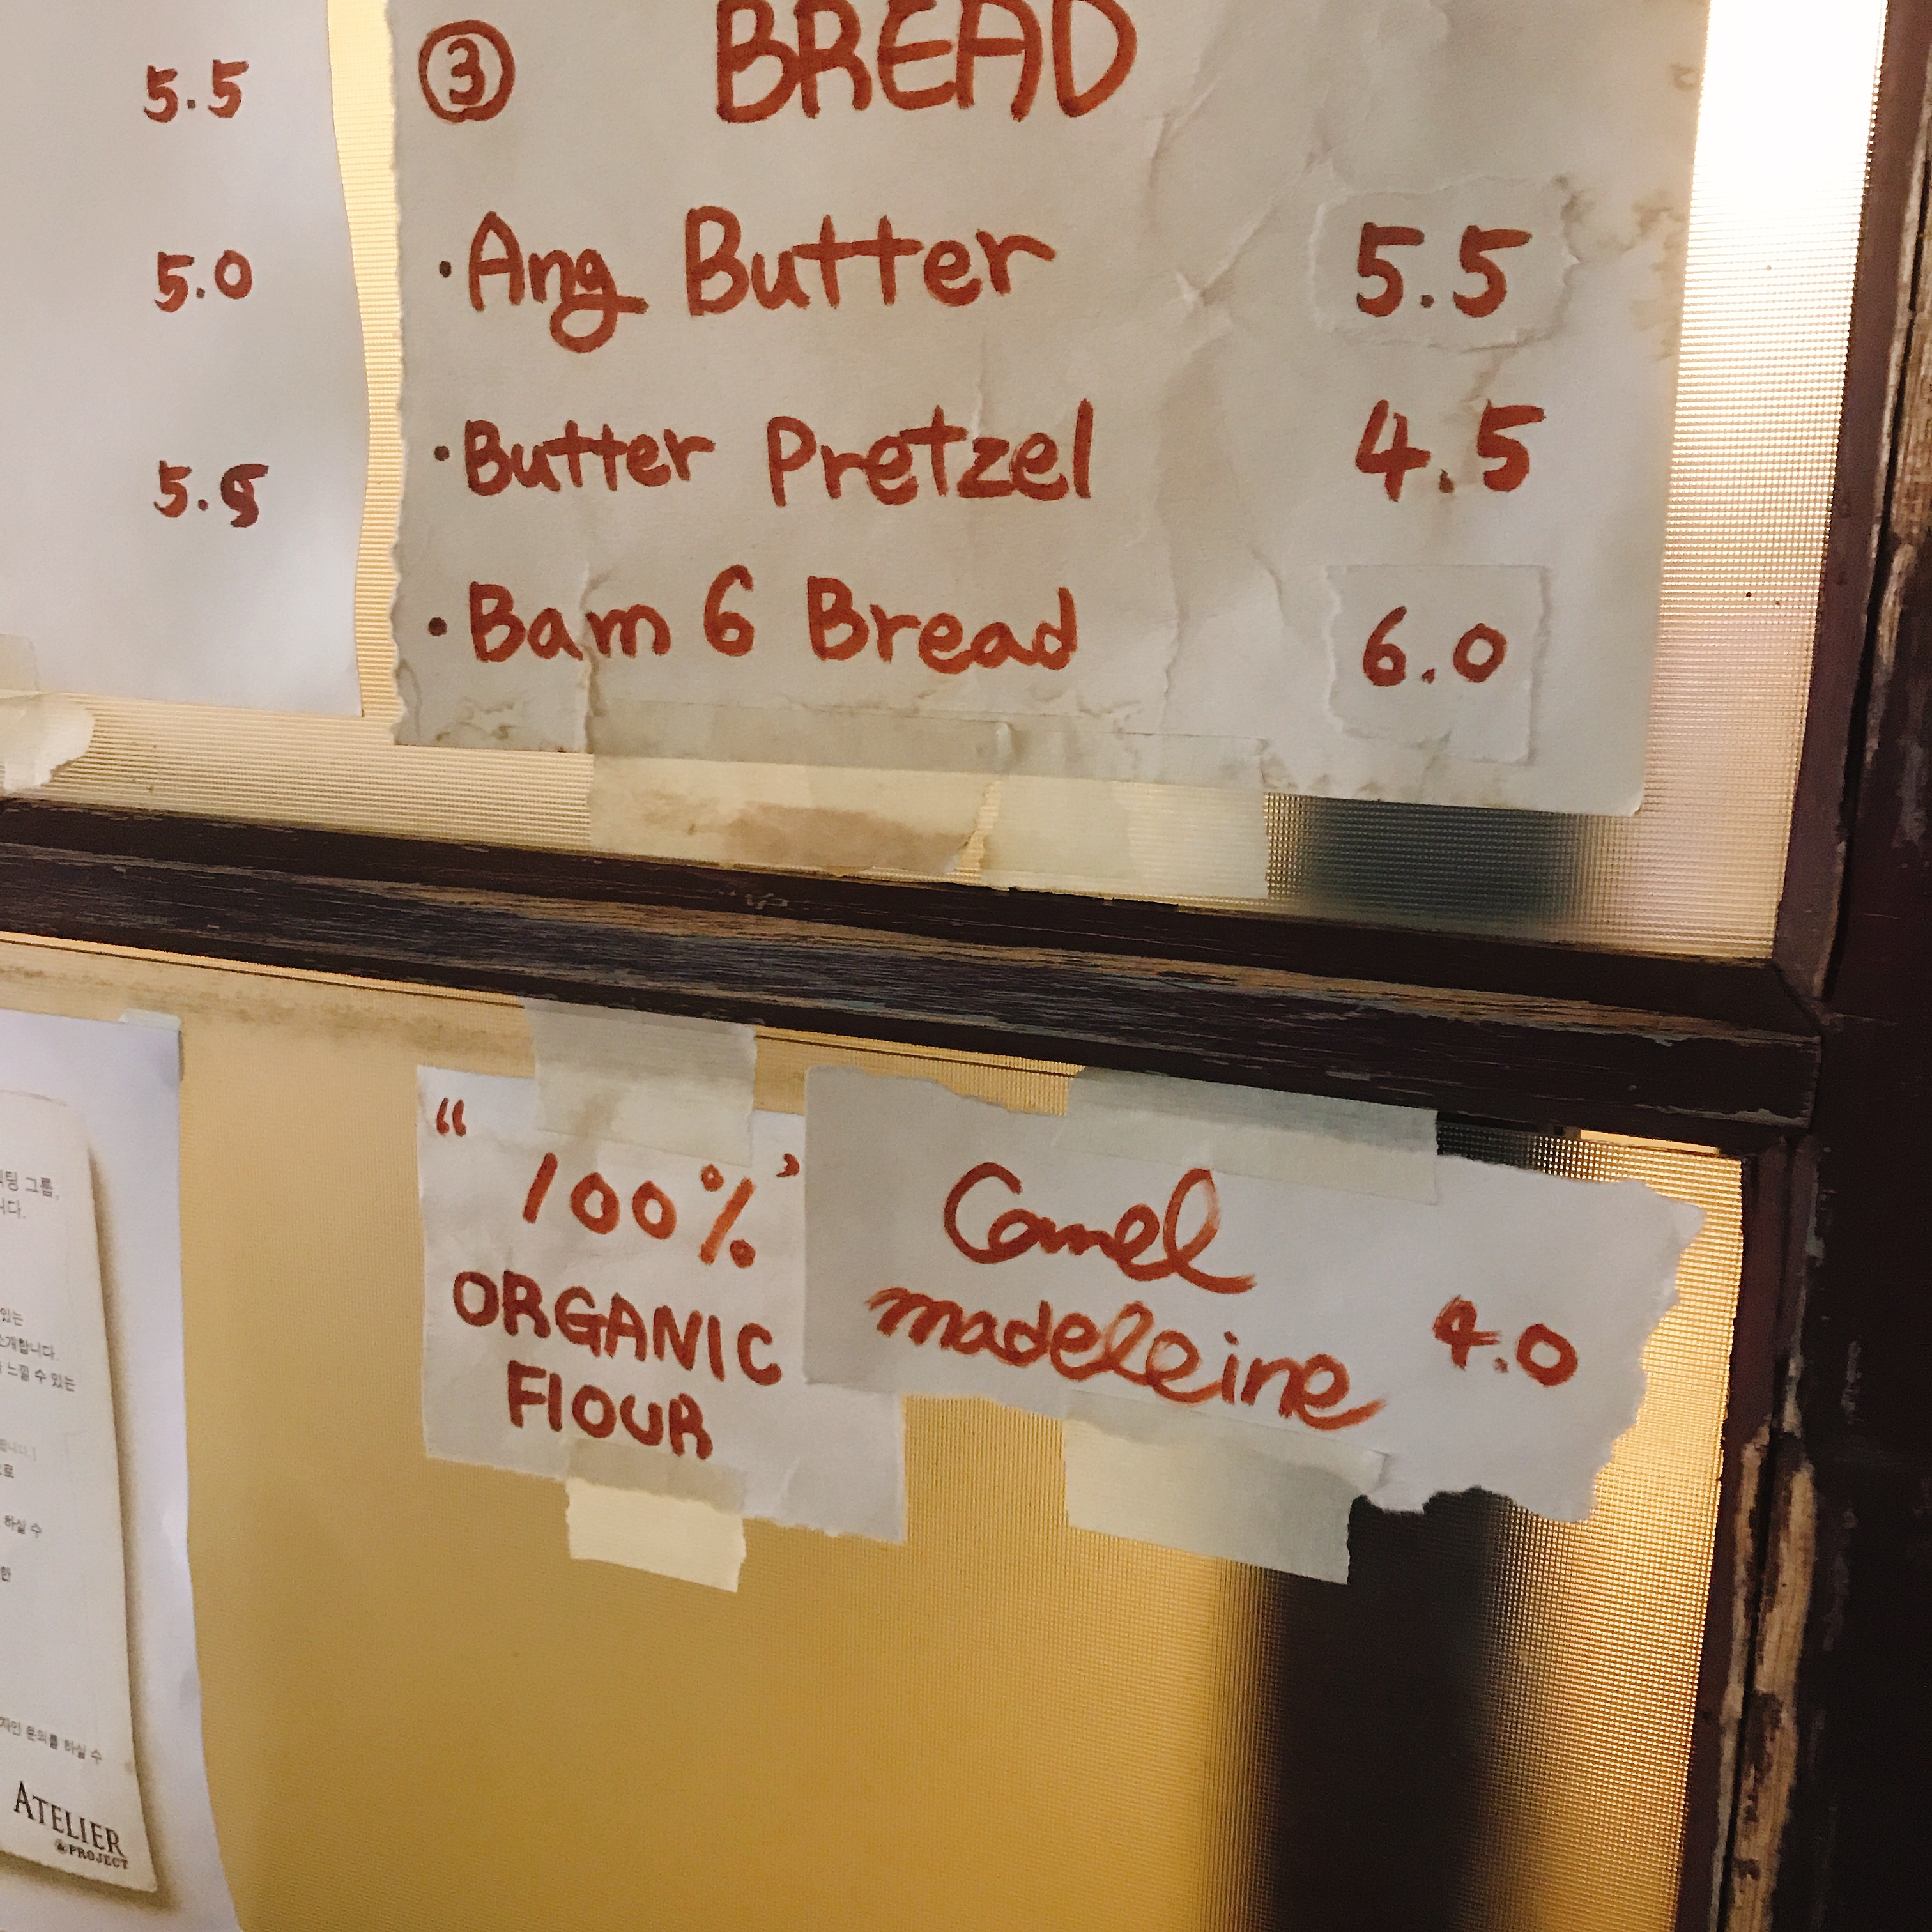 5.5
5.0
5.5
③ BREAD
·Ang Butter 5.5
·Butter Pretzel 4.5
·Bam 6 Bread 6.0
“
100%’
ORGANIC
FlOUR
Camel
madeleine 4.0
그룹,
니다.
있는
소개합니다.
느낄 수 있는
하실 수
한
문의를 하실 수
ATELIER
PROJECT